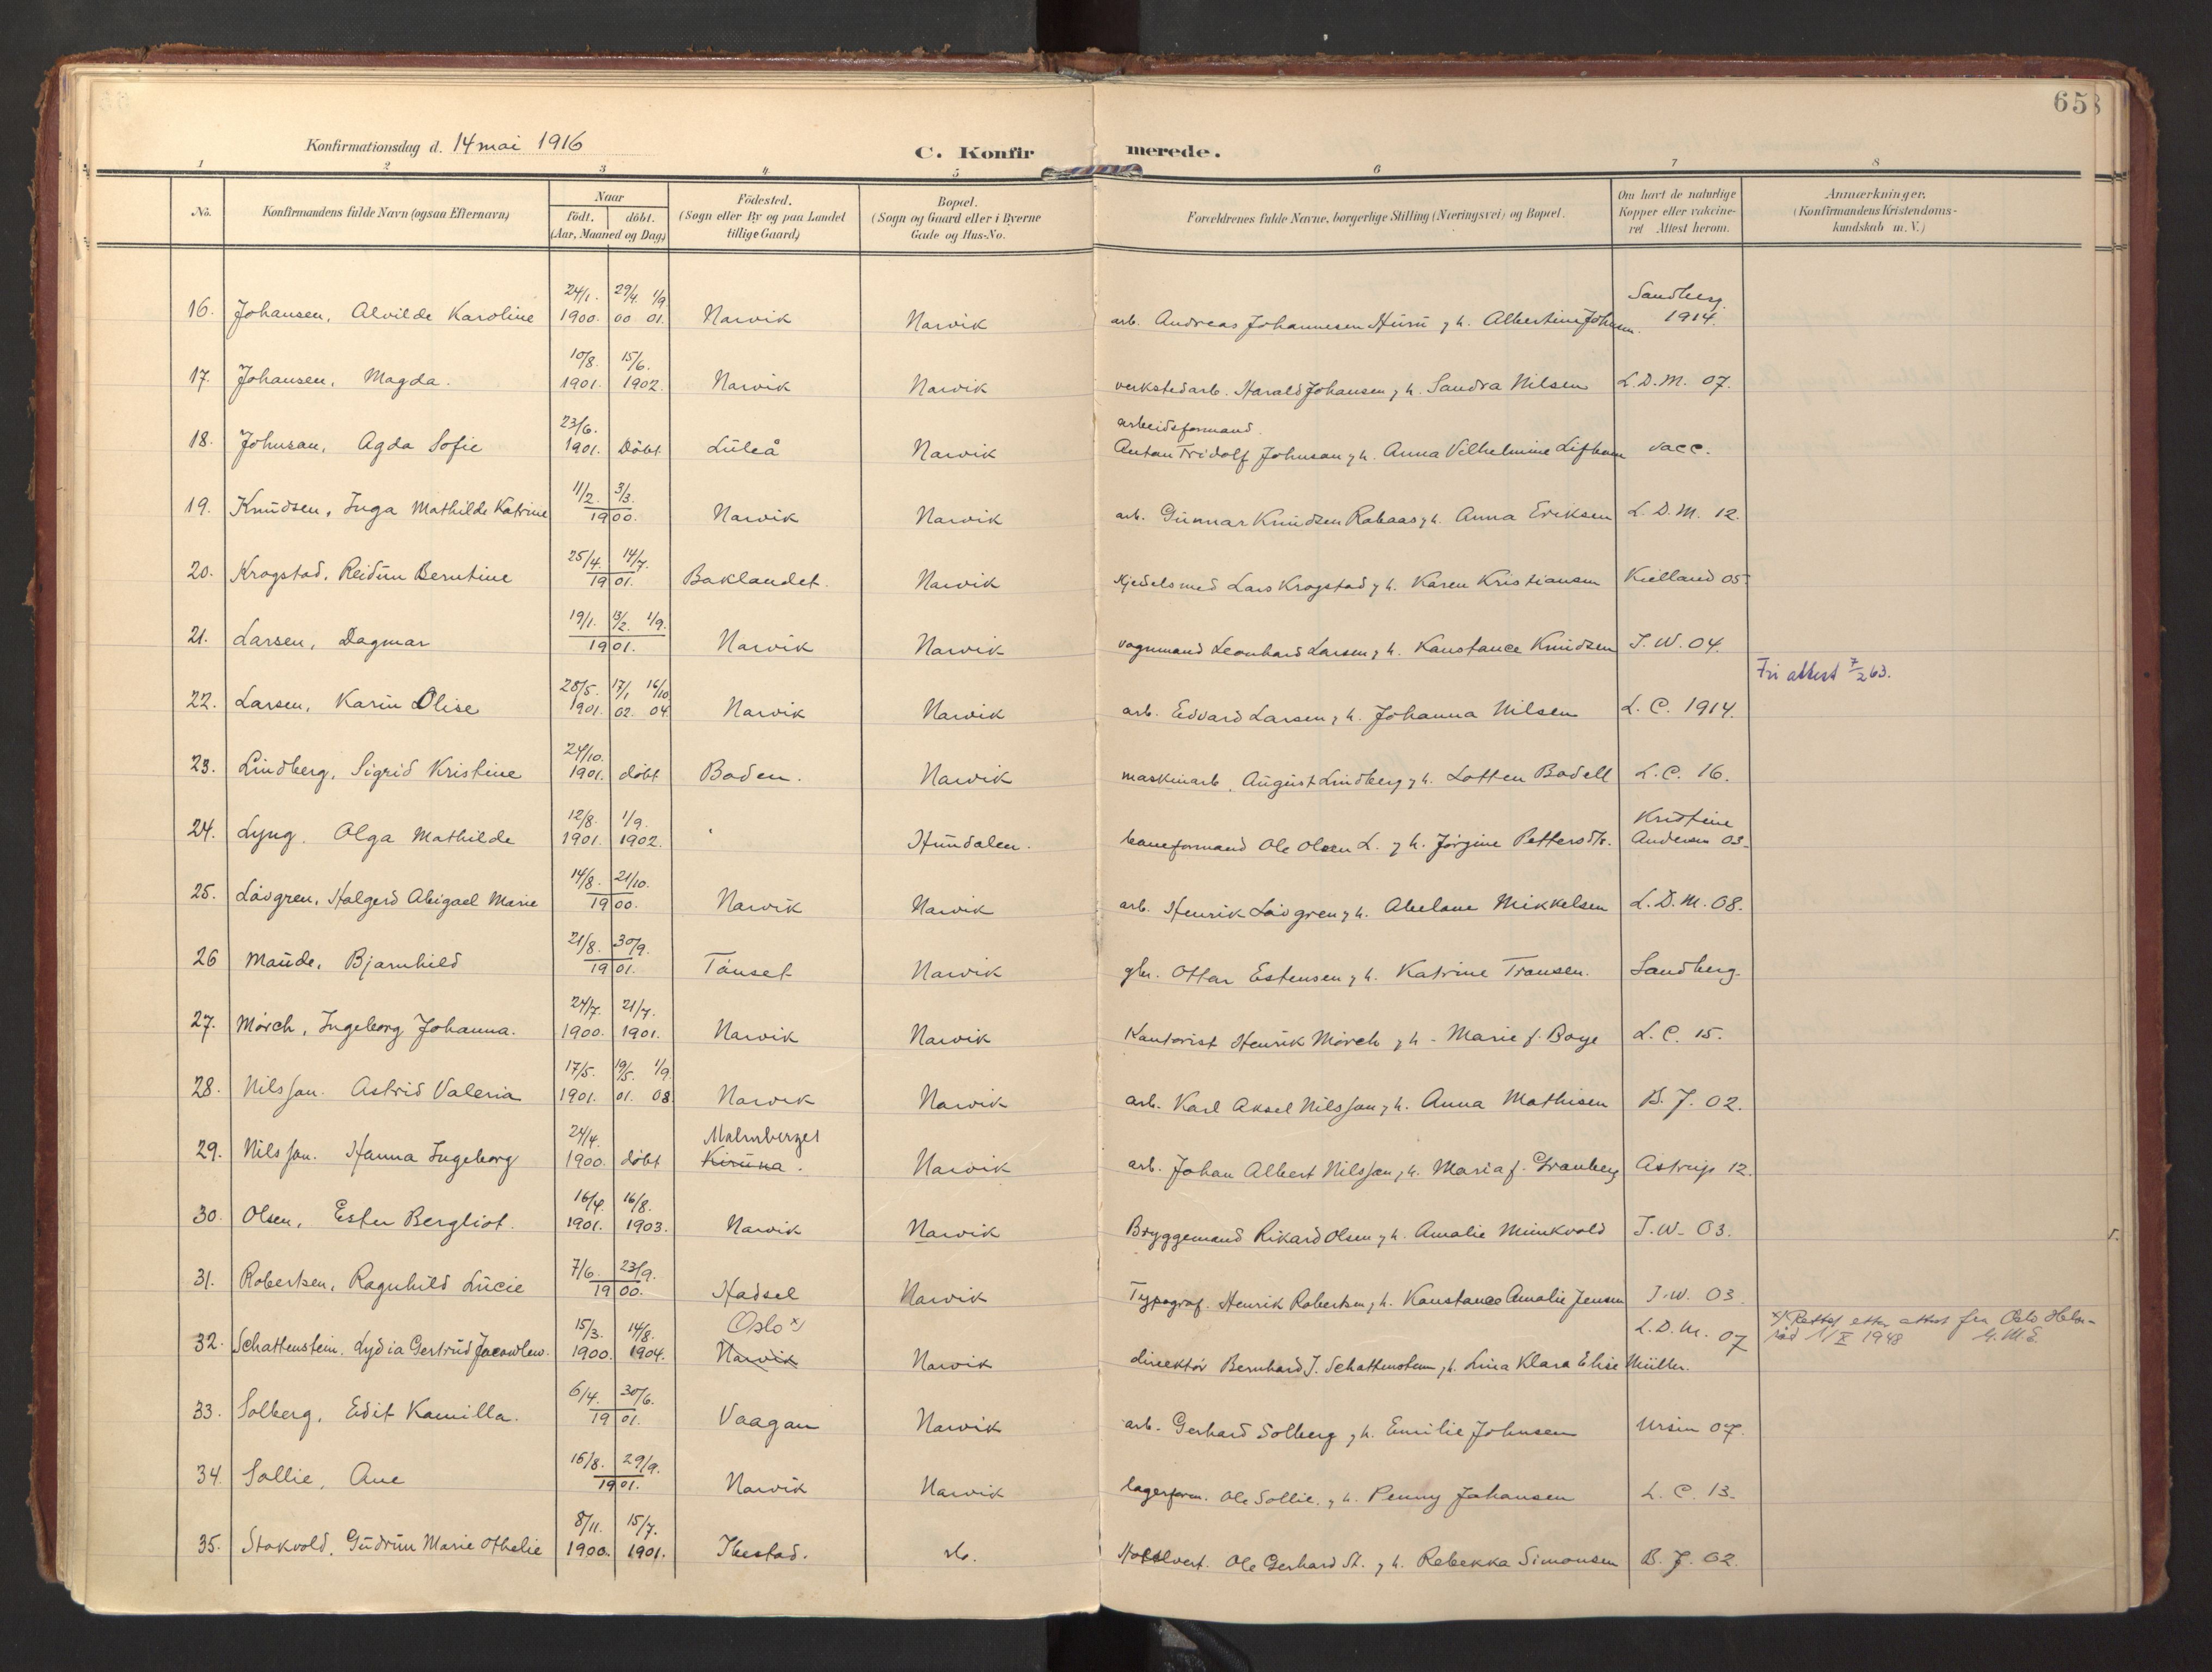 658
Konfirmationsdag d. 14 mai 1916
C. Konfirmerede.
1 2 3 4 5 6 7 8
No. Konfirmandens fulde Navn (ogsaa Efternavn) Naar født. døbt. (Aar, Maaned og Dag) Födested. (Sogn eller By og paa Landet tillige Gaard) Bopæl. (Sogn og Gaard eller i Byerne Gade og Hus-No. Forældrenes fulde Navne, borgerlige Stilling (Næringsvei) og Bopæl. Om havt de naturlige Kopper eller vakcineret Attest herom. Anmærkninger. (Konfirmandens Kristendomskundskab m. V.)
16. Johansen, Alvilde Karoline 24/1. 1900. 29/4. 00 1/9. 01. Narvik Narvik arb. Andreas Johannesen h. Albertine Johnsen. Sandberg. 1914.
17. Johansen, Magda. 10/8. 1901. 15/6. 1902. Narvik Narvik verkstedarb. Harald Johansen, h. Sandra Nilsen L. D. M. 07.
18. Johnsan, Agda Sofie 23/6. 1901. Döbt. Luleå Narvik arbeidsformand. Antan Fridolf Johnsan, h. Anna Vilhelmine vacc.
19. Knudsen, Inga Mathilde Katrine 11/2. 3/3. 1900. Narvik Narvik arb. Gunnar Knudsen Rabaas, h. Anna Eriksen L. D. M. 12.
20. Krogstad, Reidun Berntine 25/4. 14/7. 1901. Baklandet. Narvik Kjedelsmed Lars Krogstad, h. Karen Kristiansen Kielland 05
21. Larsen, Dagmar 19/1. 13/2. 1/9. 1901. Narvik Narvik vognmand Leonhard Larsen, h. Kanstance Knudsen J. W. 04.
22. Larsen, Karin Olise 28/5. 1901. 17/1 02. 16/10 04. Narvik Narvik arb. Edvard Larsen, h. Johanna Nilsen L. C. 1914. Fri attest 7/2 63.
23. Lindberg, Sigrid Kristine 24/10. 1901. døbt Boden. Narvik maskinarb. August Lindberg, h. Lotten Bodell L. C. 16.
24. Lyng. Olga Mathilde 12/8. 1901. 1/9. 1902. Hundalen. baneformand Ole Olsen L. , h. Jörgine Pettersdtr. Kristine Andersen 03.
25. Lövgren, Halgerd Abigael Marie 14/8. 21/10. 1900. Narvik Narvik arb. Henrik Lövgren, h. Abelone Mikkelsen L. D. M. 08.
26 Maude, Bjarnhild 21/8. 30/9. 1901. Tönset Narvik gbr. Ottar Estensen, h. Katrine Transen. Sandberg.
27. Mörch, Ingeborg Johanna. 24/7. 1900. 21/7. 1901. Narvik Narvik Kantorist Henrik Mörch, h. Marie f. Boye L. C. 15.
28. Nilsson. Astrid Valeria 17/5. 1901. 19/5. 01. 1/9. 08 Narvik Narvik arb. Karl Aksel Nilsson, h. Anna Mathisen B. J. 02.
29. Nilsson. Hanna Ingeborg 24/4. 1900. døbt Malmberget Kiruna. Narvik arb. Johan Albert Nilsson, h. Maria f. Granberg Astrup 12.
30. Olsen, Ester Bergliot. 16/4. 1901. 16/8. 1903. Narvik Narvik Bryggemand Rikard Olsen, h. Amalie Munkvold J. W. 03.
31. Robertsen, Ragnhild Lucie 7/6. 23/9. 1900. Hadsel Narvik Typograf. Henrik Robertsen, h. Kanstance Amalie Jensen J. W. 03.
32. Schattenstein, Lydia Gertrud Jacowlew. 15/3. 1900. 14/8. 1904. Oslo x) Narvik Narvik direktör Bernhard J. Schattenstein, h. Lina Klara Elise Müller. L. D. M. 07 x) Rettet etter attest fra Oslo Helseråd 1/X 1948
33. Solberg, Edit Kamilla. 6/4. 30/6. 1901. Vaagan Narvik arb. Gerhard Solberg, h. Emilie Johnsen Ursin 07.
34. Sollie, Ane 15/8. 29/9. 1901. Narvik Narvik lagerform. Ole Sollie, h. Penny Johansen L. C. 13.
35. Stokvold, Gudrun Marie Othelie 8/11. 1900. 15/7. 1901. Ibestad. sts. Hotelvert. Ole Gerhard St. , h. Rebekka Simonsen B. J. 02.